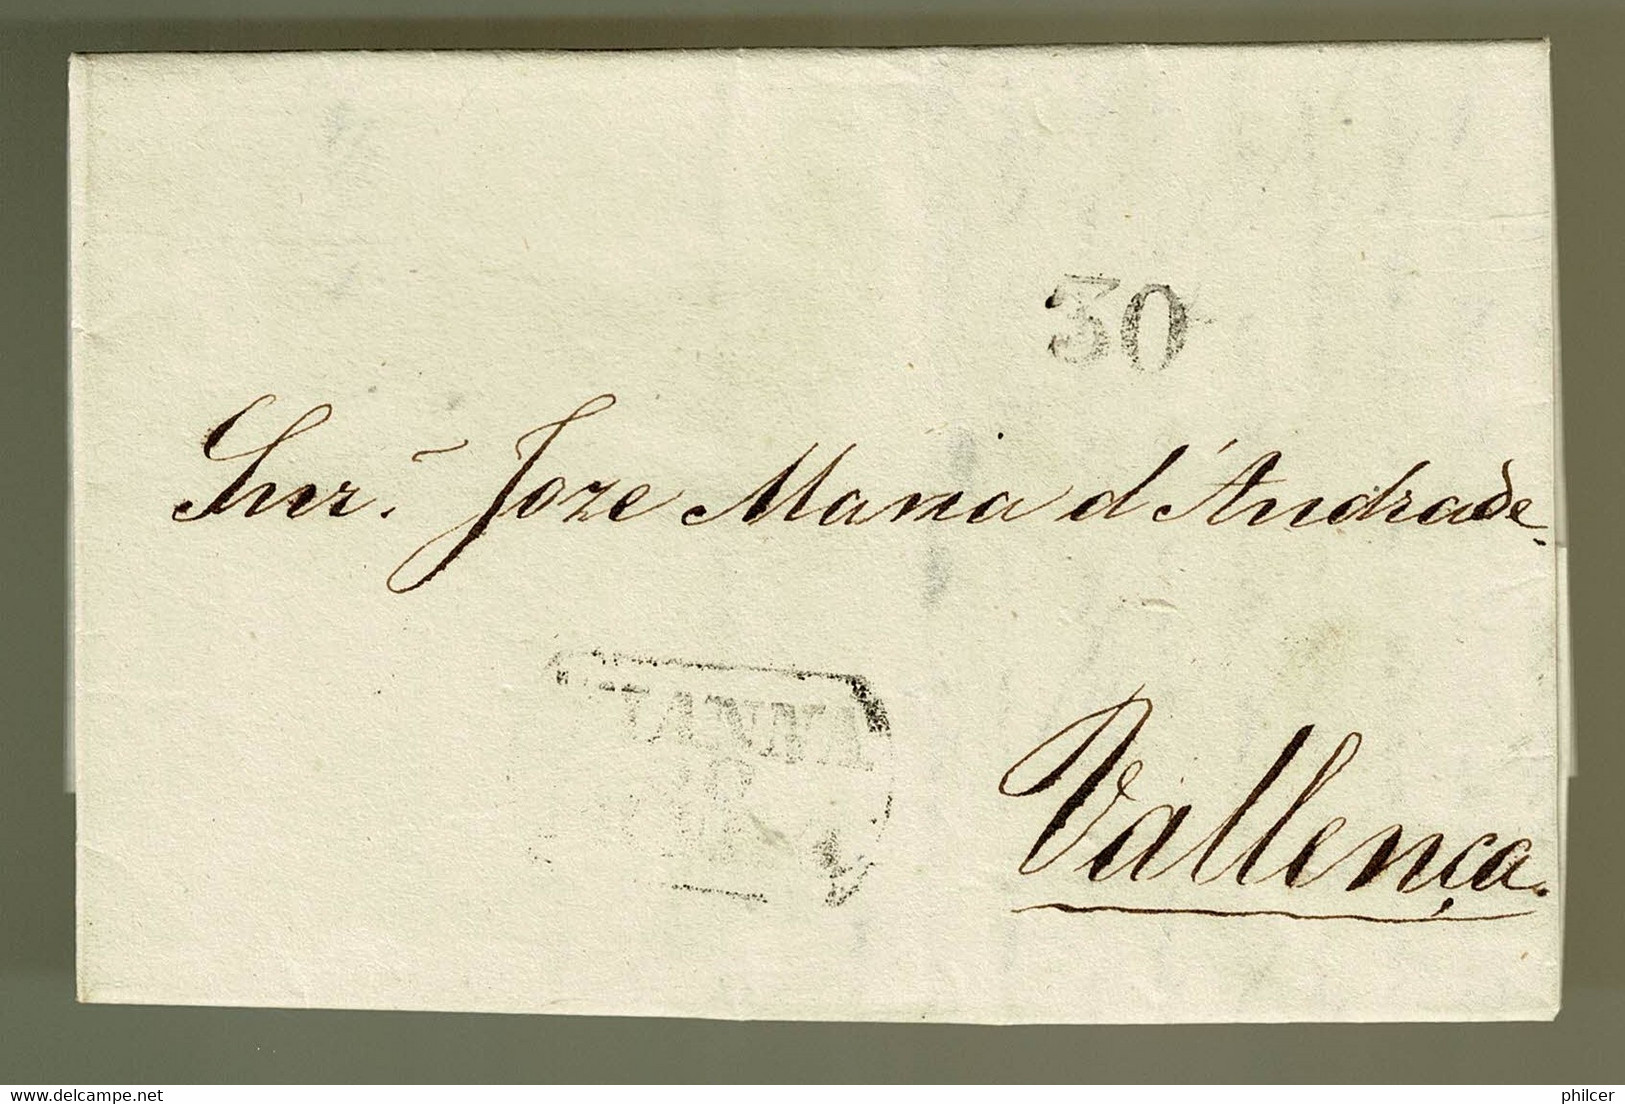 30
Snr. Joze Maria d'Andrade
Vallença.
delcampe.net
philcer